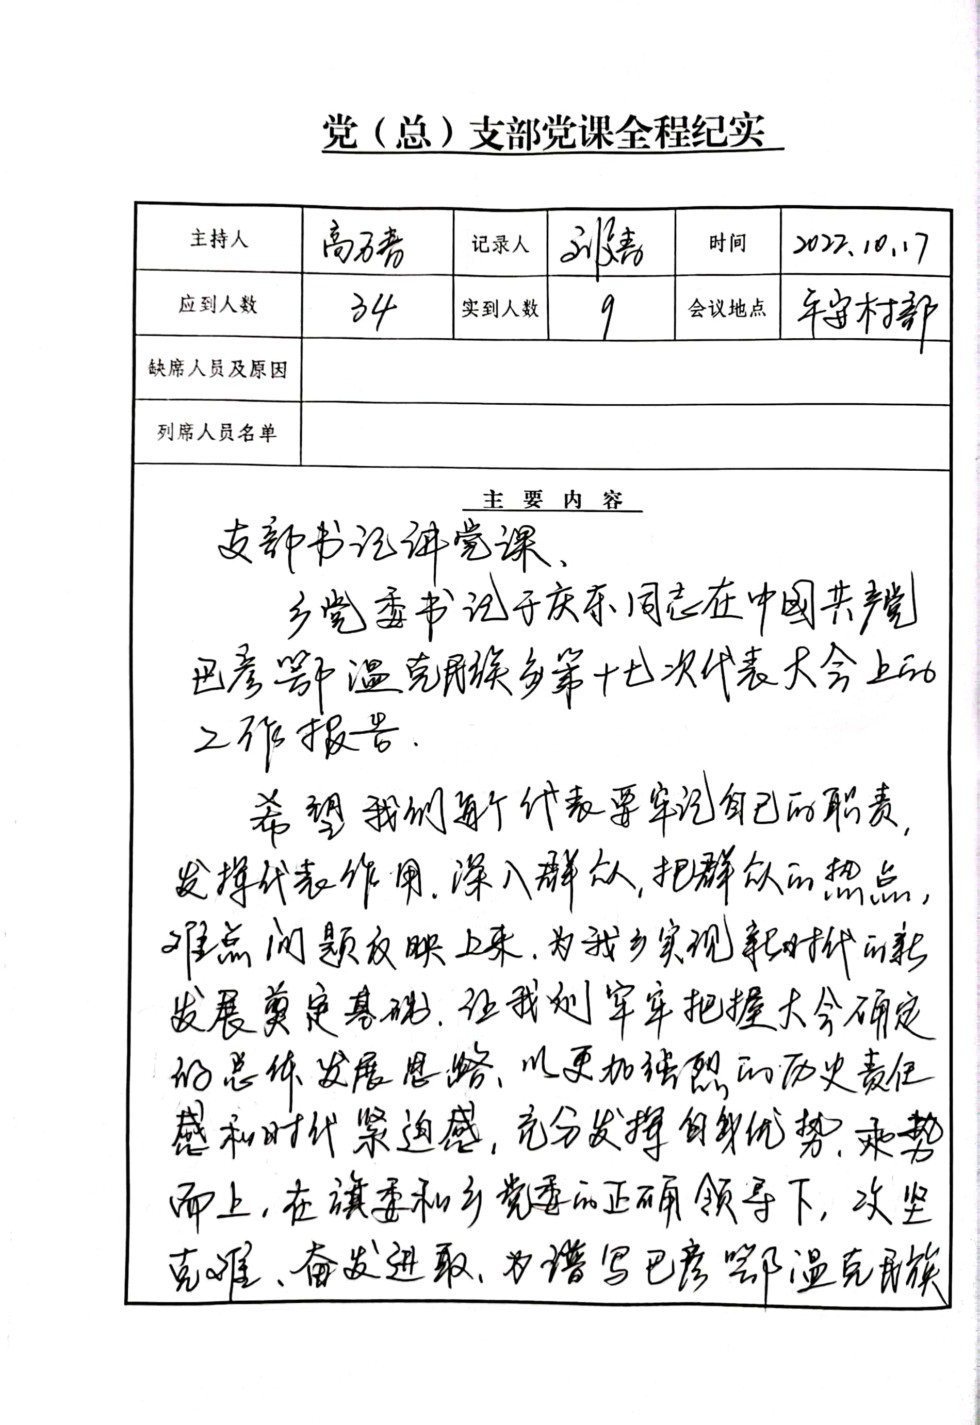 党（总）支部党课全程纪实
主持人 高万青 记录人 时间 2022.10.17
应到人数 34 实到人数 9 会议地点 平安村部
缺席人员及原因
列席人员名单
主要内容
支部书记讲党课、
乡党委书记于庆东同志在中國共产党
巴彦鄂温克民族乡第十七次代表大会上的
工作报告.
希望我们每个代表要牢记自己的职责,
发挥代表作用.深入群众,把群众的热点,
难点问题反映上来.为我乡实现新时代的新
发展奠定基础.让我们牢牢把握大会确定
的总体发展思路、以更加强烈的历史责任
感和时代紧迫感,充分发挥自身优势、乘势
而上,在旗委和乡党委的正确领导下,攻坚
克难、奋发进取、为谱写巴彦鄂温克民族